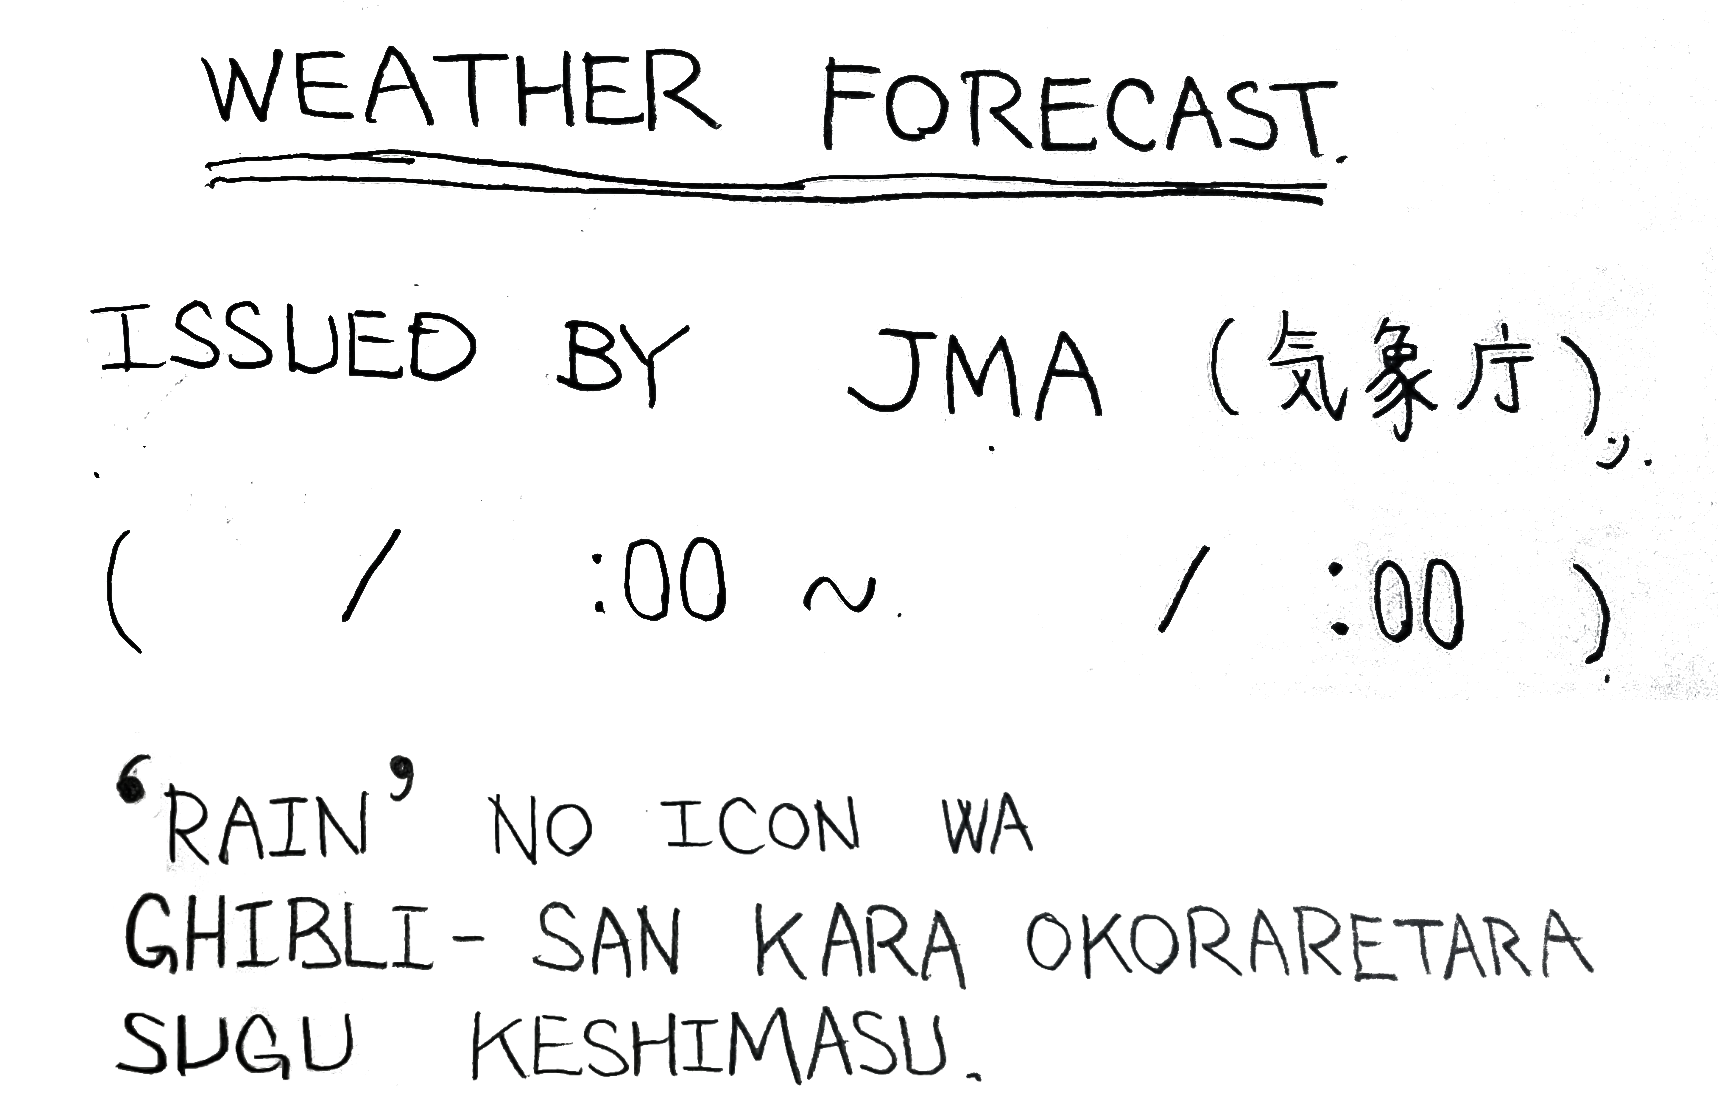 WEATHER FORECAST.
ISSUED BY JMA (気象庁),
( / :00 ~ / :00 )
‘RAIN’ NO ICON WA
GHIBLI-SAN KARA OKORARETARA
SUGU KESHIMASU.